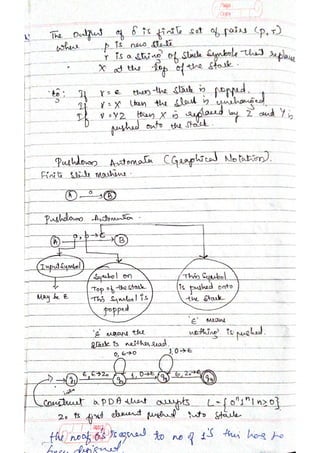 The output of δ is finite set of pairs (p, r)
where p is new state
r is a string of stack symbols that replace
X at the top of the stack.
If r = ε then the stack is popped.
If r = X then the stack is unchanged
If r = YZ then X is replaced by Z and Y is
pushed onto the stack.
Pushdown Automata (Graphical Notation).
Finite State Machine.
A a B
Pushdown Automata
a, b → c
A B
Input Symbol
May be ε
Symbol on
Top of the stack
This Symbol is
popped
This Symbol
is pushed onto
the stack.
'ε' means the
stack is neither read
'ε' means
nothing is pushed.
0, ε→0 1, 0→ε
q1 ε, ε→z0 q2 1, 0→ε q3 ε, z0→ε q4
Construct a PDA that accepts L = {0ⁿ1ⁿ | n≥0}
z0 is first element pushed into stack
the no of 0's is equal to no of 1's this has to
been designed